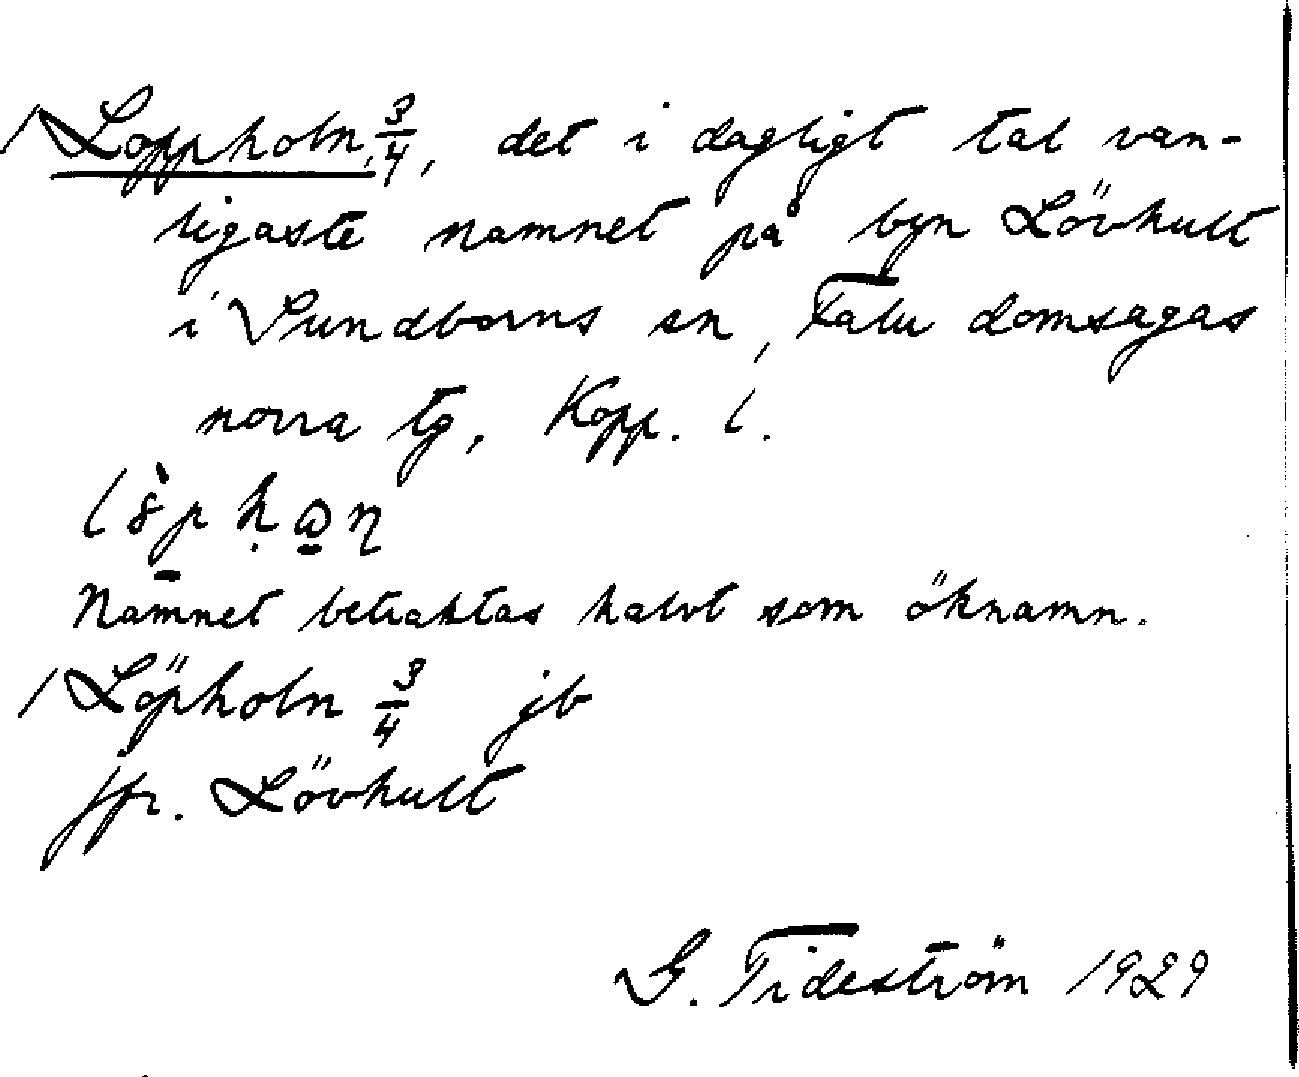 / Loppholn, 3/4, det i dagligt tal van-
ligaste namnet på byn Lövhult
i Sundborns sn, Falu domsagas
norra tg, Kopp. l.
Namnet betraktas halvt som öknamn.
/ Löpholn 3/4 jb
jfr. Lövhult
G. Tideström 1929